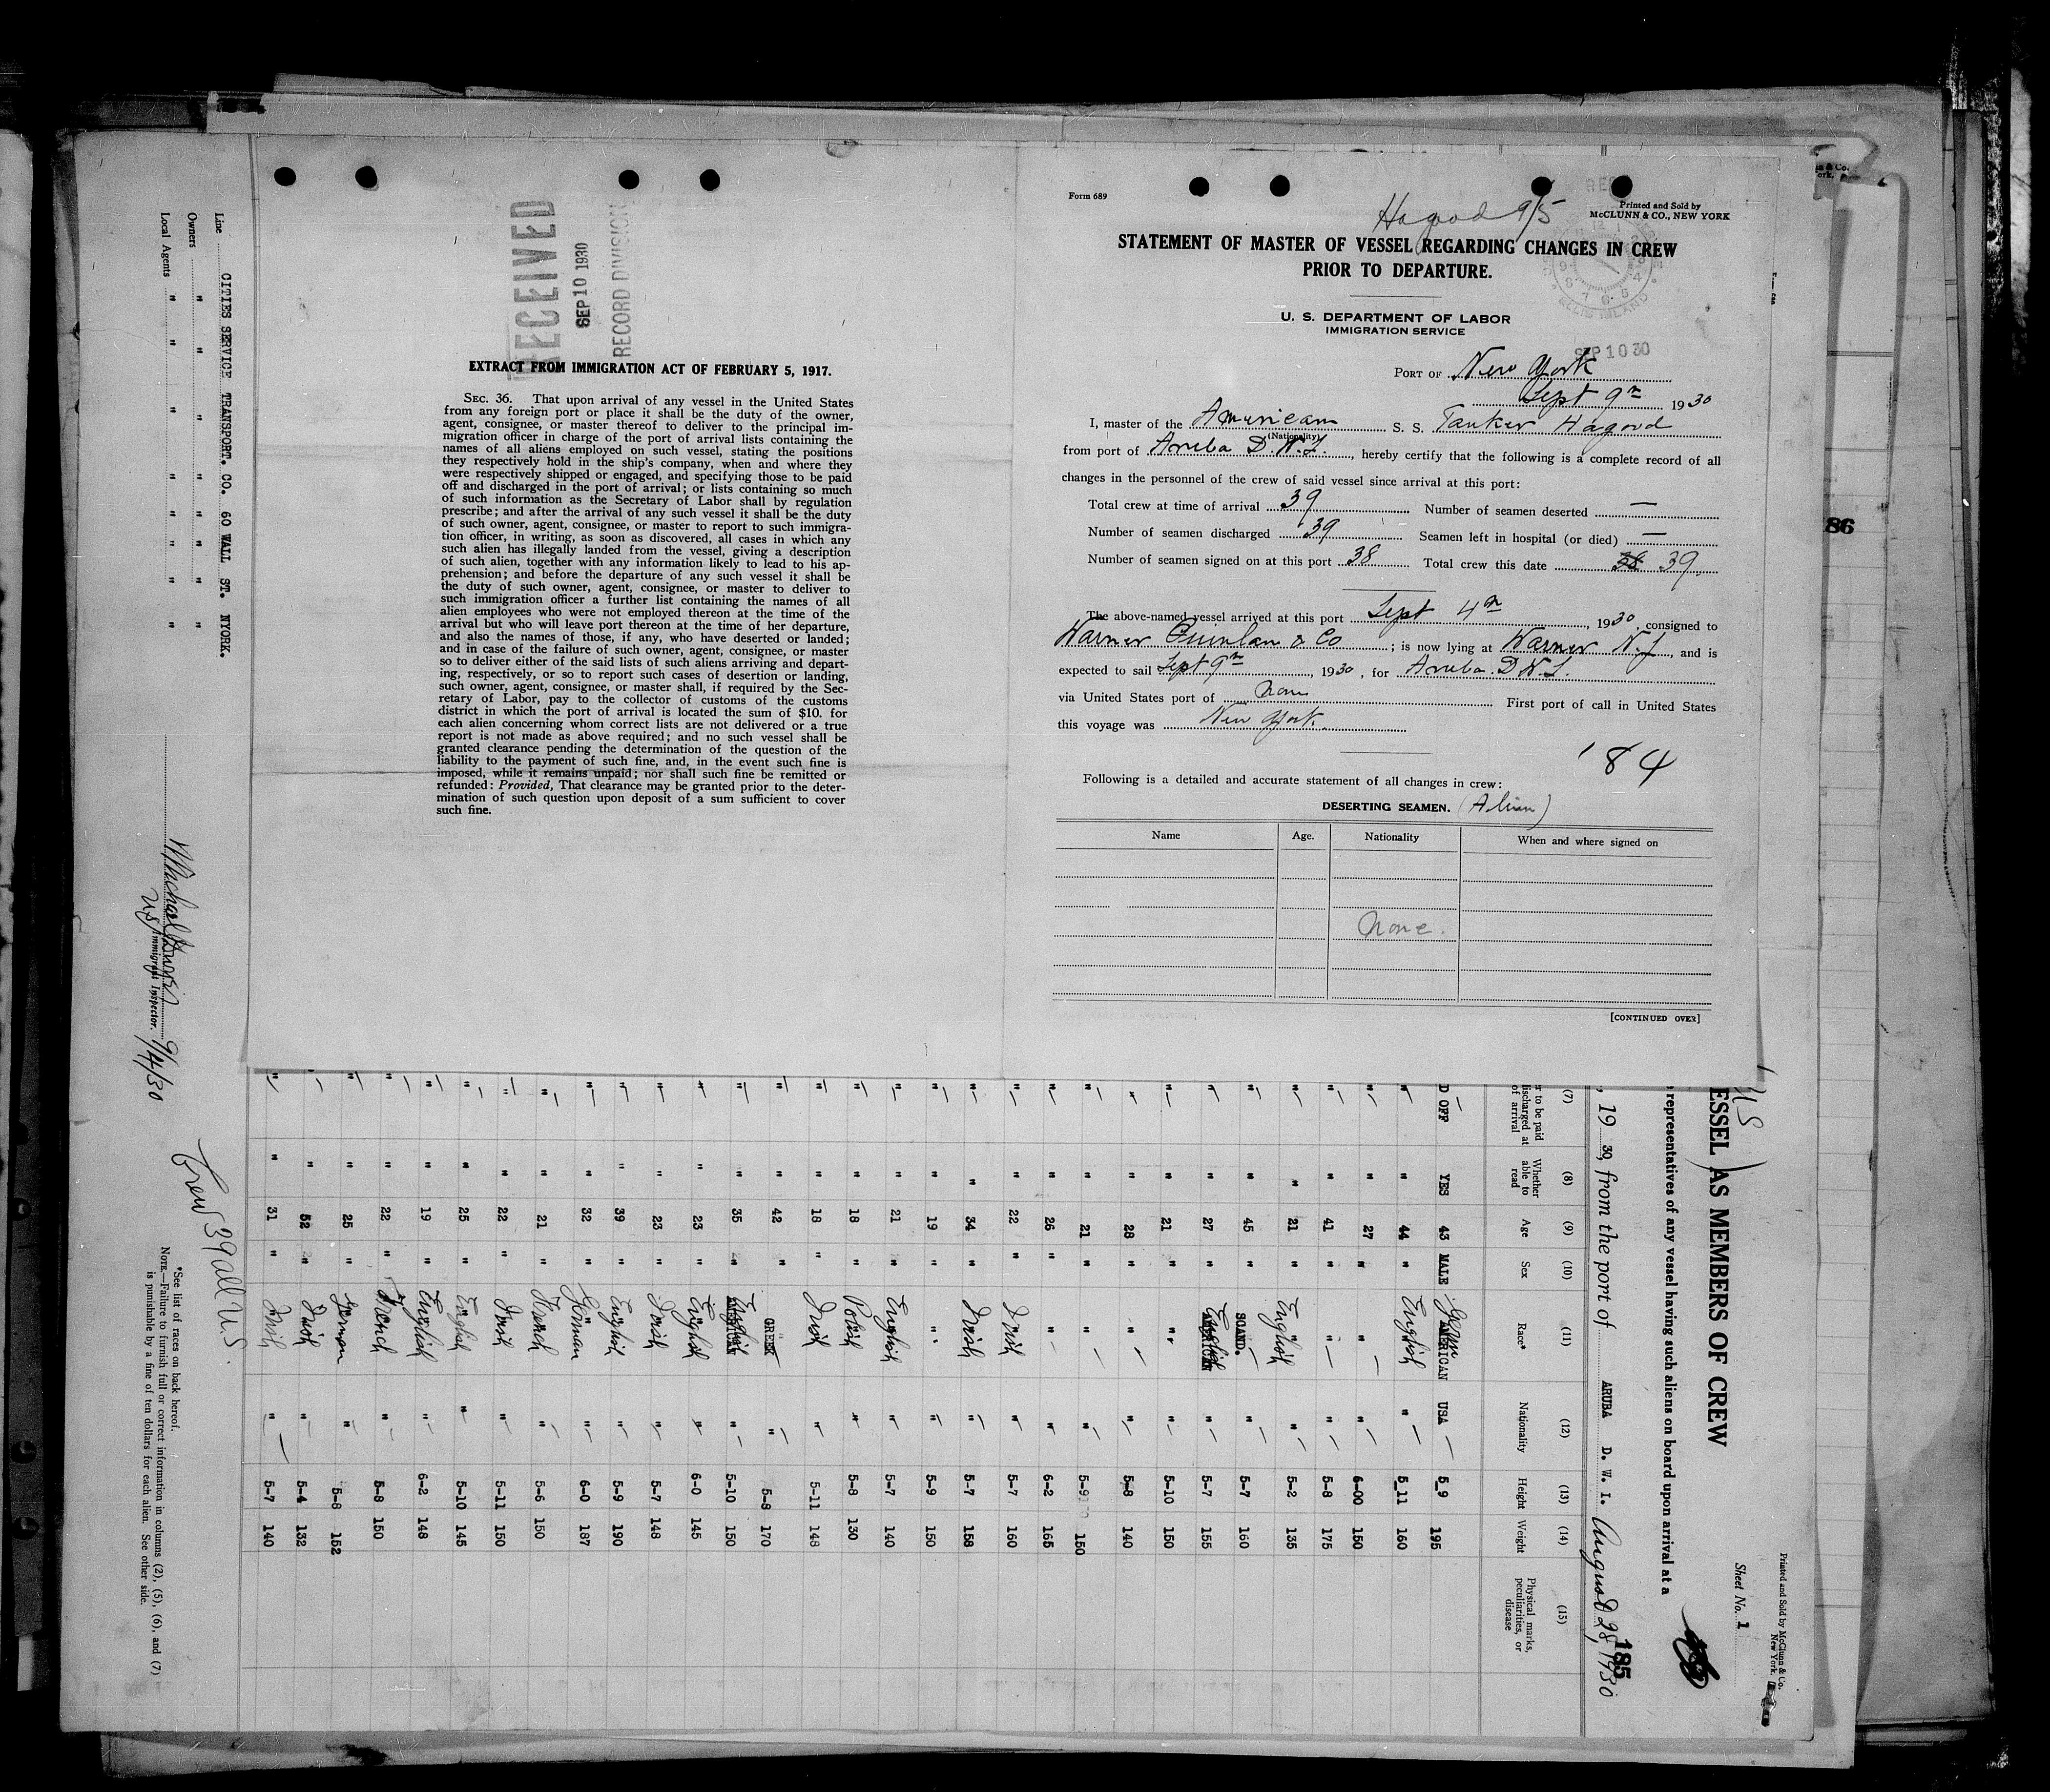 Line CITIES SERVICE TRANSPORT. CO. 60 WALL ST. NYORK.
Owners " " " " " " " "
Local Agents " " " " " " " "
Immigrant Inspector. 9/4/30
Crew 39 all U.S.
*See list of races on back hereof.
NOTE.—Failure to furnish full or correct information in columns (2), (5), (6), and (7)
is punishable by a fine of ten dollars for each alien. See other side.
RECEIVED
SEP 10 1930
RECORD DIVISION
EXTRACT FROM IMMIGRATION ACT OF FEBRUARY 5, 1917.
SEC. 36. That upon arrival of any vessel in the United States
from any foreign port or place it shall be the duty of the owner,
agent, consignee, or master thereof to deliver to the principal im-
migration officer in charge of the port of arrival lists containing the
names of all aliens employed on such vessel, stating the positions
they respectively hold in the ship's company, when and where they
were respectively shipped or engaged, and specifying those to be paid
off and discharged in the port of arrival; or lists containing so much
of such information as the Secretary of Labor shall by regulation
prescribe; and after the arrival of any such vessel it shall be the duty
of such owner, agent, consignee, or master to report to such immigra-
tion officer, in writing, as soon as discovered, all cases in which any
such alien has illegally landed from the vessel, giving a description
of such alien, together with any information likely to lead to his ap-
prehension; and before the departure of any such vessel it shall be
the duty of such owner, agent, consignee, or master to deliver to
such immigration officer a further list containing the names of all
alien employees who were not employed thereon at the time of the
arrival but who will leave port thereon at the time of her departure,
and also the names of those, if any, who have deserted or landed;
and in case of the failure of such owner, agent, consignee, or master
so to deliver either of the said lists of such aliens arriving and depart-
ing, respectively, or so to report such cases of desertion or landing,
such owner, agent, consignee, or master shall, if required by the Sec-
retary of Labor, pay to the collector of customs of the customs
district in which the port of arrival is located the sum of $10. for
each alien concerning whom correct lists are not delivered or a true
report is not made as above required; and no such vessel shall be
granted clearance pending the determination of the question of the
liability to the payment of such fine, and, in the event such fine is
imposed, while it remains unpaid; nor shall such fine be remitted or
refunded: Provided, That clearance may be granted prior to the deter-
mination of such question upon deposit of a sum sufficient to cover
such fine.
Form 689
Hagood 9/5
Printed and Sold by
McCLUNN & CO., NEW YORK
STATEMENT OF MASTER OF VESSEL REGARDING CHANGES IN CREW
PRIOR TO DEPARTURE.
ELLIS ISLAND
U. S. DEPARTMENT OF LABOR
IMMIGRATION SERVICE
SEP 10 30
PORT OF New York
Sept 9th 1930
I, master of the American S. S. Tanker Hagood
(Nationality)
from port of Aruba D.W.I., hereby certify that the following is a complete record of all
changes in the personnel of the crew of said vessel since arrival at this port:
Total crew at time of arrival 39 Number of seamen deserted —
Number of seamen discharged 39 Seamen left in hospital (or died) —
Number of seamen signed on at this port 38 Total crew this date 38 39
The above-named vessel arrived at this port Sept 4th, 1930, consigned to
Warner Quinlan & Co; is now lying at Warner N.J., and is
expected to sail Sept 9th, 1930, for Aruba D.W.I.
via United States port of None First port of call in United States
this voyage was New York.
184
Following is a detailed and accurate statement of all changes in crew:
DESERTING SEAMEN. (Alien)
Name Age. Nationality When and where signed on
None.
[CONTINUED OVER]
86
Printed and Sold by McClunn & Co.
New York.
Sheet No. 1
U S
ESSEL AS MEMBERS OF CREW
representatives of any vessel having such aliens on board upon arrival at a
, 19 30, from the port of ARUBA D. W. I. August 28, 1930
185
(7) (8) (9) (10) (11) (12) (13) (14) (15)
r to be paid Whether Age Sex Race* Nationality Height Weight Physical marks,
ischarged at able to peculiarities, or
of arrival read disease
D OFF YES 43 MALE AMERICAN USA 5_9 195
" " 44 " English " 5_11 160
" " 27 " " " 6-00 150
" " 41 " " " 5-8 175
" " 21 " English " 5-2 135
" " 45 " SCAND. " 5-7 160
" " 27 " English " 5-7 155
" " 21 " " " 5-10 150
" " 28 " " " 5-8 140
" " 21 " " " 5-9 150
" " 26 " " " 6-2 165
" " 22 " Irish " 5-7 160
" " 34 " Irish " 5-7 158
" " 19 " " " 5-9 150
" " 21 " English " 5-7 140
" " 18 " Polish " 5-8 130
" " 18 " Irish " 5-11 148
" " 42 " GREEK " 5-8 170
" " 35 " English " 5-10 150
" " 23 " English " 6-0 145
" " 23 " Irish " 5-7 148
" " 39 " English " 5-9 190
" " 32 " German " 6-0 187
" " 21 " French " 5-6 150
" " 22 " Irish " 5-11 150
" " 25 " English " 5-10 145
" " 19 " English " 6-2 148
" " 22 " French " 5-8 150
" " 25 " German " 5-8 152
" " 52 " Irish " 5-4 132
" " 31 " Irish " 5-7 140